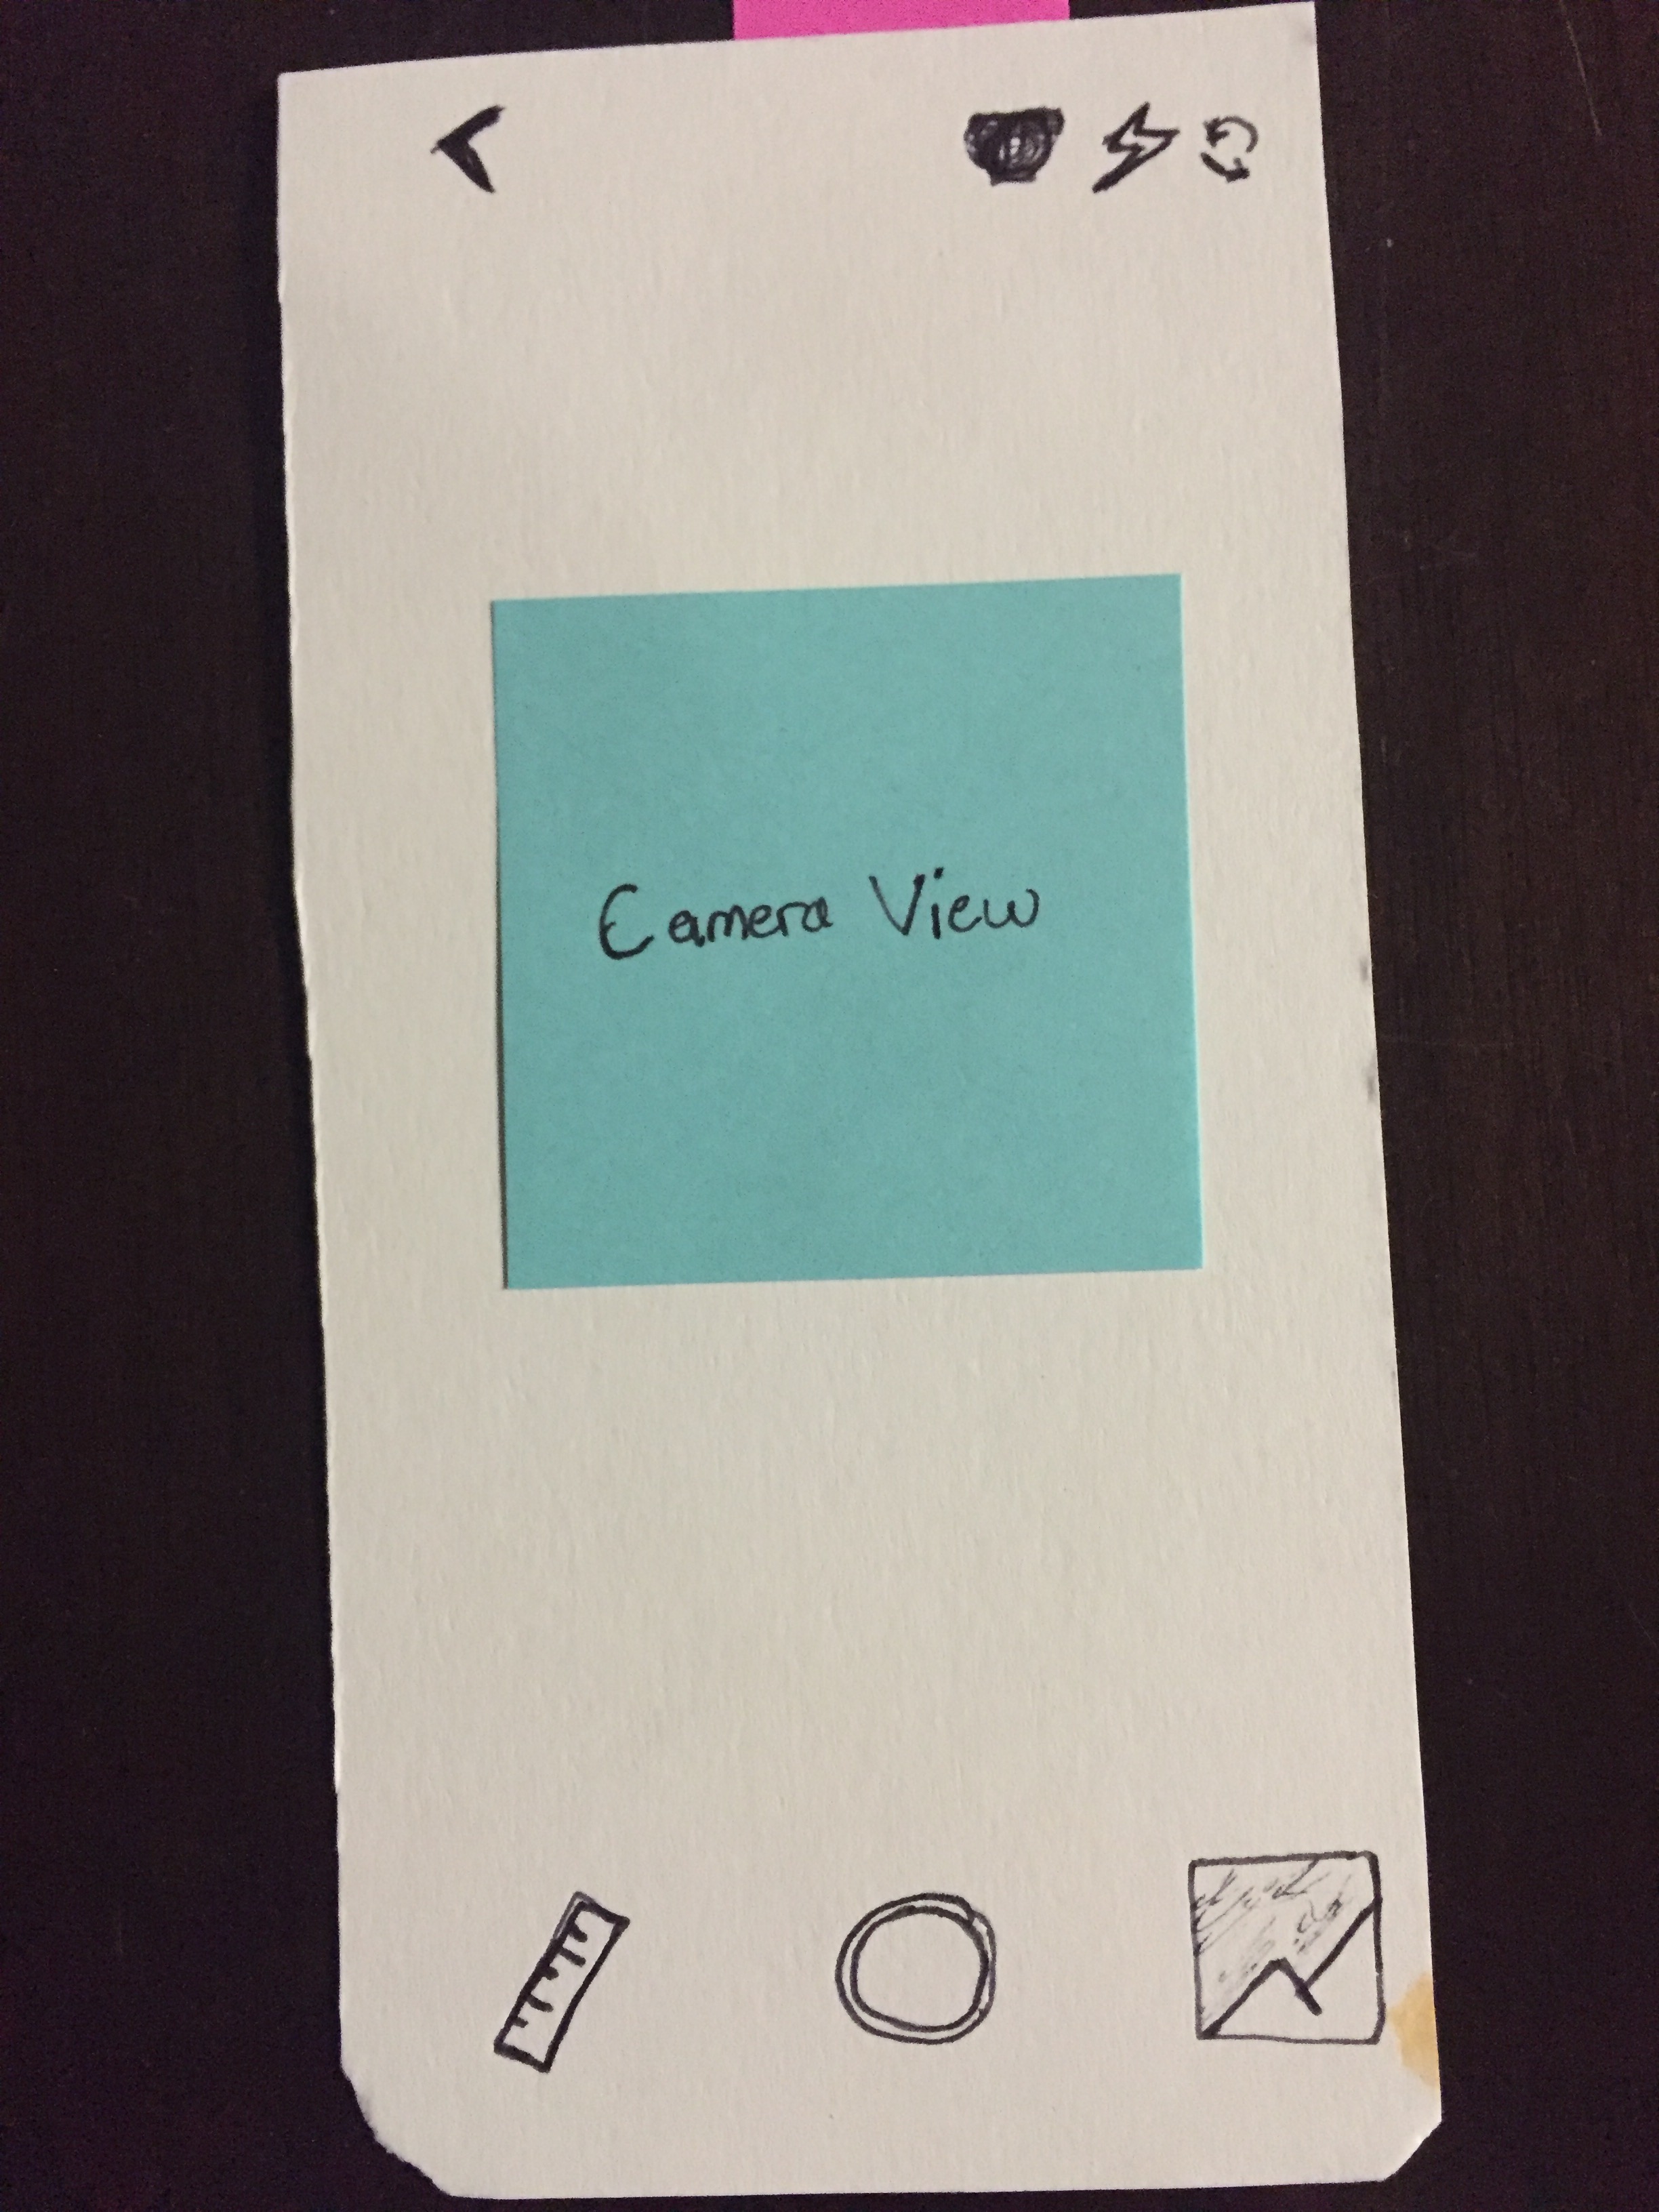 Camera View